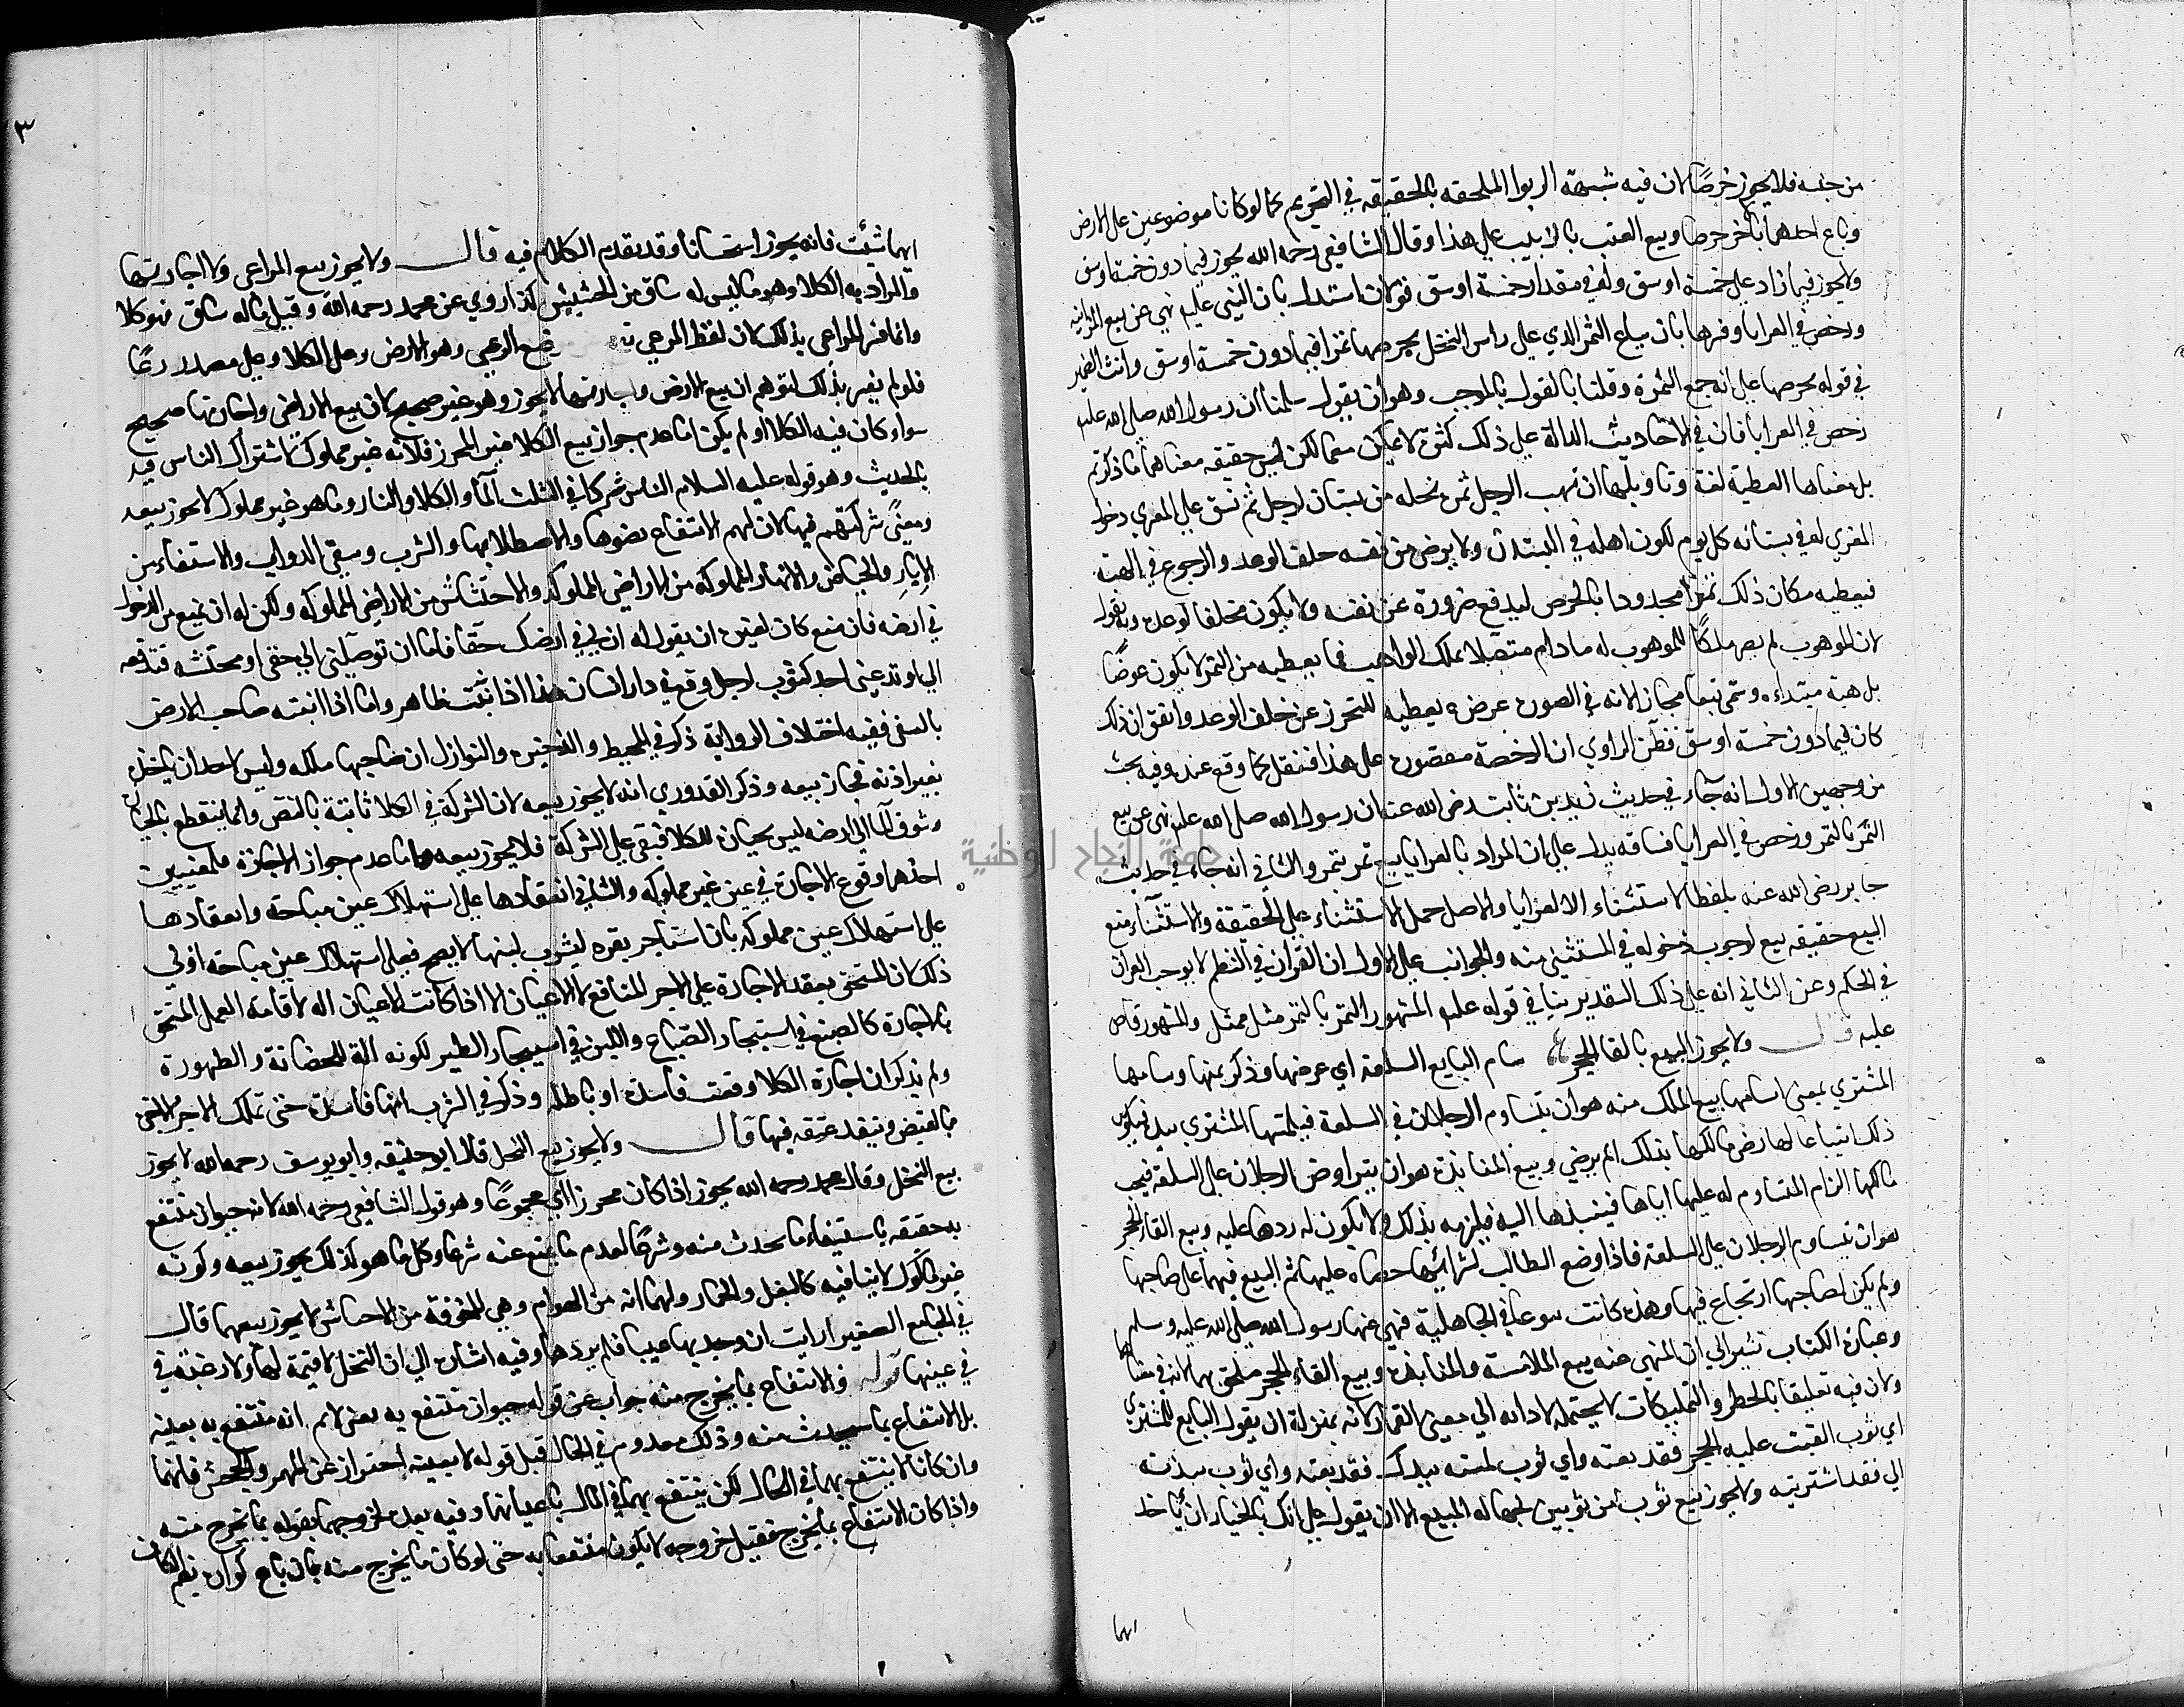 من جنسه فلا يجوز خرصًا لان فيه شبهة الربوا الملحقه بالحقيقه في التحريم كما لو كانا موضوعين على الارض
وباع احدهما بالاخر خرصا وبيع العنب بالزبيب على هذا وقال الشافعي رحمه الله يجوز فيما دون خمسة اوسق
ولا يجوز فيما زاد على خمسة اوسق وله في مقدار خمسة اوسق قولان استدل بان النبي عليه نهى عن بيع المزابنه
ورخص في العرايا وفسرها بان يباع الثمر الذي على راس النخل بخرصها تمرا فيما دون خمسة اوسق وانث الضمير
في قوله بخرصها على انه جمع الثمرة وقلنا بالقول بالموجب وهو ان يقول سلمنا ان رسول الله صلى الله عليه
رخص في العرايا فان في الاحاديث الدالة على ذلك كثرة لا يمكن منعها لكن ليس حقيقه معناها ما ذكرتم
بل معناها العطية لغة وتاويلها ان يهب الرجل ثمرة نخله من بستان لرجل ثم يشق على المعري دخول
المعري له في بستانه كل يوم لكون اهله في البستان ولا يرضى من نفسه خلف الوعد والرجوع في الهبة
فيعطيه مكان ذلك تمرا مجدودا بالخرص ليدفع ضرورة عن نفسه ولا يكون مخلفا لوعده وبه نقول
لان الموهوب لم يصر ملكًا للموهوب له ما دام متصلا بملك الواهب فما يعطيه من التمر لا يكون عوضًا
بل هبة مبتداه وسمي بيعا مجازا لانه في الصورة عوض يعطيه للتحرز عن خلف الوعد واتفق ان ذلك
كان فيما دون خمسة اوسق فظن الراوي ان الرخصة مقصورة على هذا فنقل كما وقع عنده وفيه بحث
من وجهين الاول انه جآء في حديث زيد بن ثابت رضى الله عنه ان رسول الله صلى الله عليه نهى عن بيع
الثمر بالتمر ورخص في العرايا فسياقه يدل على ان المراد بالعرايا بيع ثمر بتمر والثاني انه جاء في حديث
جابر رضى الله عنه بلفظ الاستثناء الا العرايا والاصل حمل الاستثناء على الحقيقة والاستثناء من
البيع حقيقه بيع لوجوب دخوله في المستثنى منه والجواب عن الاول ان القران في النظم لا يوجب القران
في الحكم وعن الثاني انه على ذلك التقدير ينافي قوله عليه المشهور التمر بالتمر مثل بمثل والمشهور قاض
عليه قال ولا يجوز البيع بالقا الحجر سام البايع السلعة اي عرضها وذكر ثمنها وسامها
المشتري بمعنى استامها بيع الملك منه هو ان يتساوم الرجلان في السلعة فيلمسها المشتري بيده فيكون
ذلك ابتياعا لها رضى مالكها بذلك ام لم يرضى وبيع المنابذة هو ان يتراوض الرجلان على السلعة فيحب
مالكها الزام المتساوم له عليها اياها فينبذها اليه فيلزمه بذلك ولا يكون له ردها عليه وبيع القاء الحجر
هو ان يتساوم الرجلان على السلعة فاذا وضع الطالب لشرائها حصاه عليها تم البيع فيها على صاحبها
ولم يكن لصاحبها ارتجاع فيها وهذه كانت بيوعا في الجاهلية فنهى عنها رسول الله صلى الله عليه وسلم
وعبارة الكتاب تشير الى ان المنهي عنه بيع الملامسة والمنابذه وبيع القاء الحجر ملحق بهما لانه في معناهما
ولان فيه تعليقا بالخطر والتمليكات لا يحتمله لادائه الى معنى القمار لانه بمنزلة ان يقول البايع للمشتري
اي ثوب القيت عليه الحجر فقد بعته واي ثوب لمسته بيدك فقد بعته واي ثوب نبذته
الي فقد اشتريته ولا يجوز بيع ثوب من ثوبين لجهالة المبيع الا ان يقول على انك بالخيار ان تاخذ
ايهما
٣
ايهما شئت فانه يجوز استحسانا وقد تقدم الكلام فيه قال ولا يجوز بيع المراعى ولا اجارتها
والمراد به الكلا وهو ما ليس له ساق من الحشيش كذا روي عن محمد رحمه الله وقيل ما له ساق فهو كلا
وانما فسر المراعى بذلك لان لفظ المرعى موضع الرعي وهو الارض وعلى الكلا وعلى مصدر رعى
فلو لم يفسر بذلك لتوهم ان بيع الارض واجارتها لا يجوز وهو غير صحيح لان بيع الاراضي واجارتها صحيح
سواء كان فيه الكلا او لم يكن اما عدم جواز بيع الكلا غير المحرز فلانه غير مملوك لاشتراك الناس فيه
بالحديث وهو قوله عليه السلام الناس شركا في الثلث المآ والكلا والنار وما هو غير مملوك لا يجوز بيعه
ومعنى شركتهم فيها ان لهم الانتفاع بضوها والاصطلا بها والشرب وسقي الدواب والاستقاء من
الابار والحياض والانهار المملوكه من الاراضي المملوكه والاحتشاش من الاراضي المملوكه ولكن له ان يمنع من الدخول
في ارضه فان منع كان لغيره ان يقول له ان لي في ارضك حقا فاما ان توصلني الى حقي او تحتشه فتدفعه
الي او تدعني اخذ كثوب لرجل وقع في دار انسان هذا اذا نبتت ظاهر واما اذا انبته صاحب الارض
بالسقى ففيه اختلاف الرواية ذكر في المحيط والذخيرة والنوازل ان صاحبها ملكه وليس لاحد ان ياخذه
بغير اذنه فجاز بيعه وذكر القدوري انه لا يجوز بيعه لان الشركة في الكلا ثابتة بالنص وانما ينقطع بالحيازة
وسوق المآ الى ارضه ليس بحيازة للكلا فبقي على الشركة فلا يجوز بيعه واما عدم جواز الاجارة فلمعنيين
احدهما وقوع الاجارة في عين غير مملوكه والثاني انعقادها على استهلاك عين مباحة وانعقادها
على استهلاك عين مملوكه بان استاجر بقره ليشرب لبنها لا يصح فعلى استهلاك عين مباحة اولى
ذلك لان المستحق بعقد الاجارة على الاجر المنافع لا الاعيان الا اذا كانت الاعيان اله لاقامة العمل المستحق
بالاجارة كالصبغ في استيجار الصباغ واللبن في استيجار الظير لكونه آلة للحضانة والظهورة
ولم يذكر ان اجارة الكلا وقعت فاسدة او باطلة وذكر في الشرب انها فاسدة حتى تملك الاجر الاجرة
بالقبض وينفذ عتقه فيها قال ولا يجوز بيع النحل قال ابو حنيفه وابو يوسف رحمهما الله لا يجوز
بيع النحل وقال محمد رحمه الله يجوز اذا كان محرزا اي مجموعًا وهو قول الشافعي رحمه الله لانه حيوان منتفع
به حقيقه باستيفاء ما يحدث منه وشرعًا لعدم ما يمنع عنه شرعا وكل ما هو كذلك يجوز بيعه وكونه
غير ماكول لا ينافيه كالبغل والحمار ولهما انه من الهوام وهي المخوفة من الاحناش لا يجوز بيعهما قال
في الجامع الصغير ارايت ان وجد بها عيبا فلم يردها وفيه اشارة الى ان النحل لا قيمة لها ولا رغبة في
في عينها قوله والانتفاع بما يخرج منه جواب عن قوله حيوان منتفع به يعنى لا نم انه منتفع به بعينه
بل الانتفاع بما سيحدث منه وذلك معدوم في الحال قبل قوله لا بعينه احتراز عن المهر والجحش فانهما
وان كانا لا ينتفع بهما في الحال لكن ينتفع بهما في المال باعيانهما وفيه بعد لخروجهما بقوله بما يخرج منه
واذا كان الانتفاع بما يخرج فقبل خروجه لا يكون منتفعا به حتى لو كان ما يخرج منه بان باع كوارة